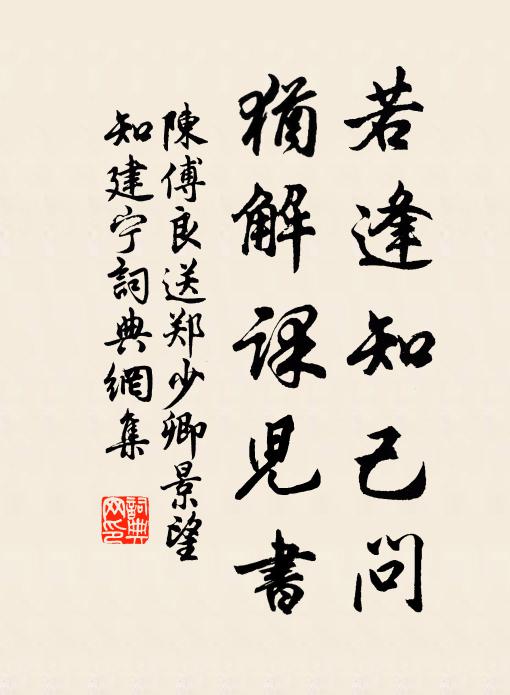 若逢知己问
猶解課兒書
陳傅良送郑少卿景望
知建宁詞典網集
詞典網印